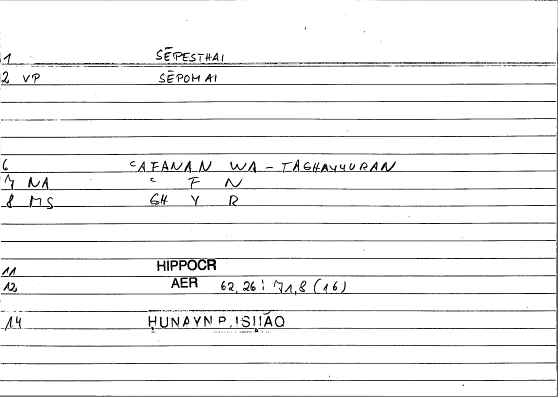 1 SĒPESTHAI
2 VP SĒPOMAI
6 ʿAFANAN WA-TAGHAYYURAN
7 NA ʿ F N
8 MS GH Y R
11 HIPPOCR
12 AER 62,26: 71,8 (16)
14 ḤUNAYN P. ISḤĀQ